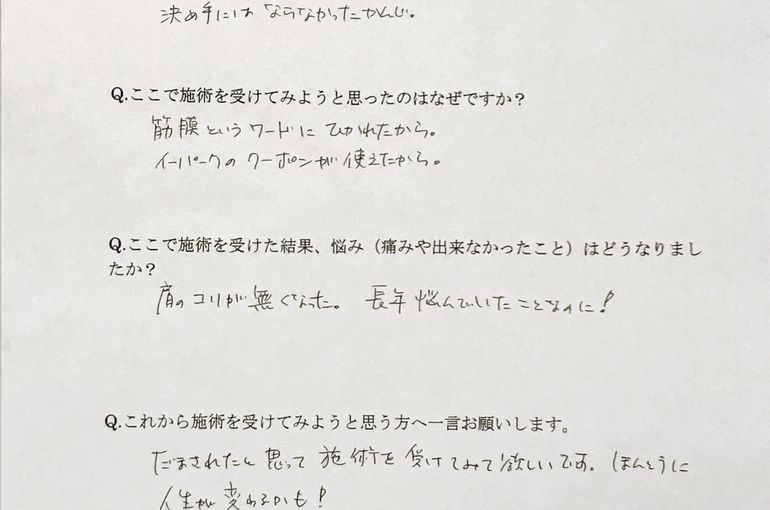 決め手にはならなかったかんじ。
Q.ここで施術を受けてみようと思ったのはなぜですか？
筋膜というワードにひかれたから。
イーパークのクーポンが使えたから。
Q.ここで施術を受けた結果、悩み（痛みや出来なかったこと）はどうなりまし
たか？
肩のコリが無くなった。長年悩んでいたことなのに！
Q.これから施術を受けてみようと思う方へ一言お願いします。
だまされたと思って施術を受けてみて欲しいです。ほんとうに
人生が変わるかも！